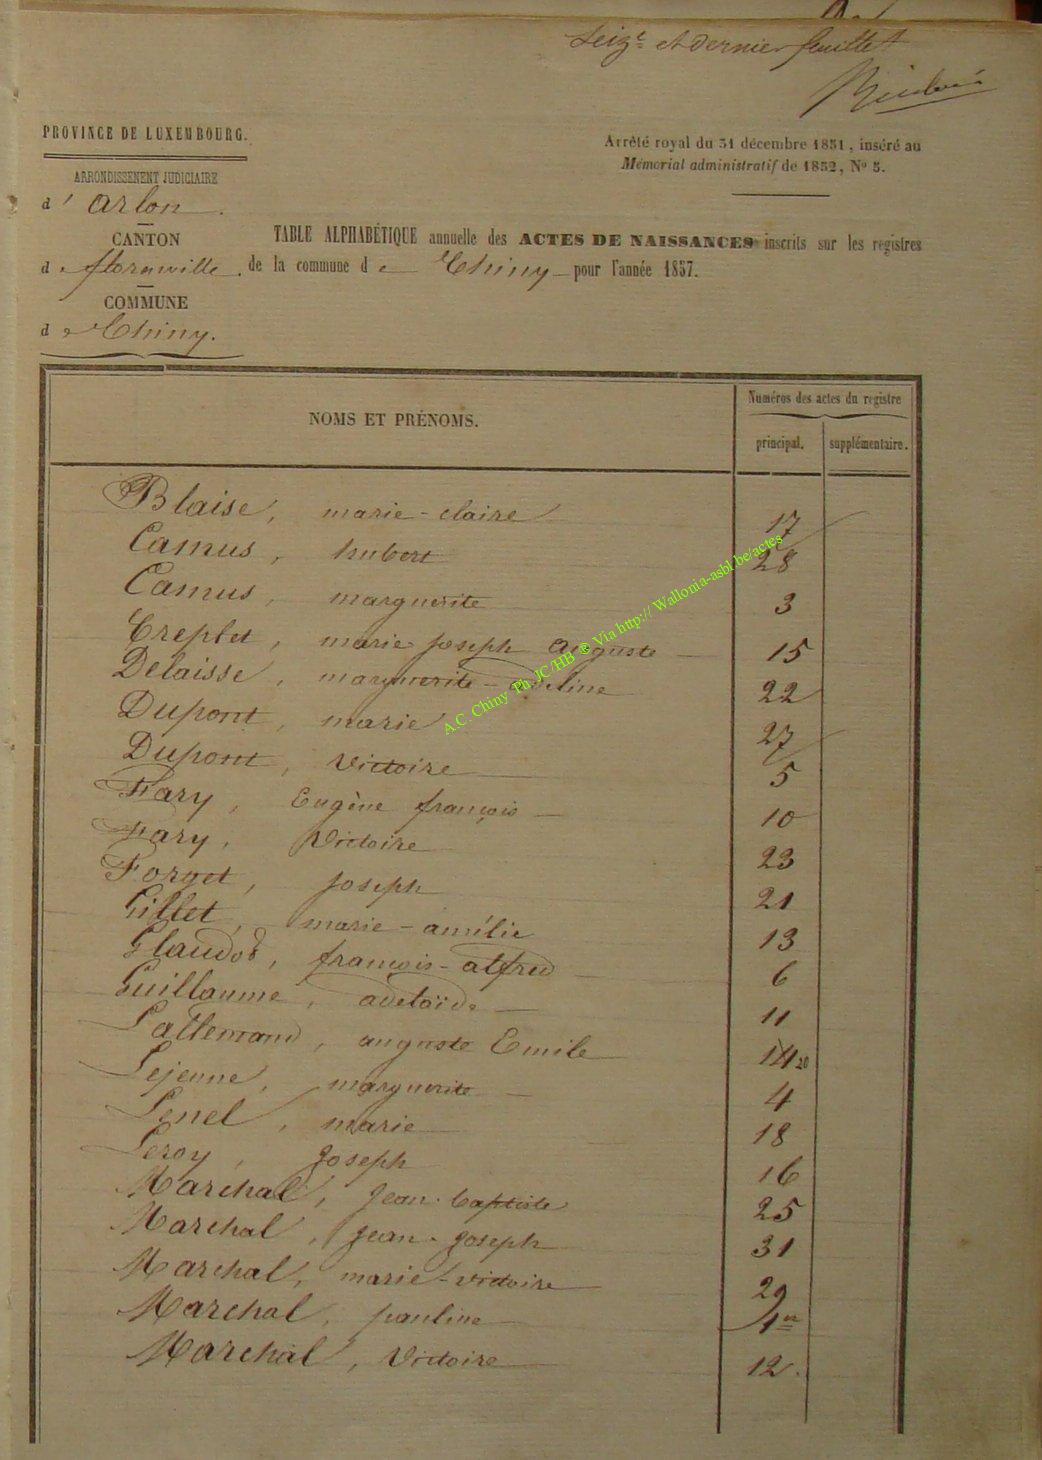 Seiz.e et dernier feuillet
PROVINCE DE LUXEMBOURG.
Arrêté royal du 31 décembre 1831, inséré au
Mémorial administratif de 1832, No 5.
ARRONDISSEMENT JUDICIAIRE
d'Arlon.
CANTON
de florenville.
COMMUNE
de Chiny.
TABLE ALPHABÉTIQUE annuelle des ACTES DE NAISSANCES inscrits sur les registres
de la commune de Chiny pour l'année 1857.
NOMS ET PRÉNOMS.
Numéros des actes du registre
principal. supplémentaire.
Blaise, marie-claire 17
Camus, hubert 28
Camus, marguerite 3
Creplet, marie joseph auguste 15
Delaisse, marguerite-adeline 22
Dupont, marie 27
Dupont, Victoire 5
Fary, Eugène françois 10
Fary, Victoire 23
Forget, joseph 21
Gillet, marie-amélie 13
Glaudot, françois-alfred 6
Guillaume, adelaïde 11
Lallemand, auguste Emile 14 20
Lejeune, marguerite 4
Lenel, marie 18
Leroy, joseph 16
Marchal, jean-baptiste 25
Marchal, jean-joseph 31
Marchal, marie-victoire 29
Marchal, pauline 1er
Marchal, Victoire 12.
A.C. Chiny Ph JC/HB ® Via http:// Wallonia-asbl.be/actes